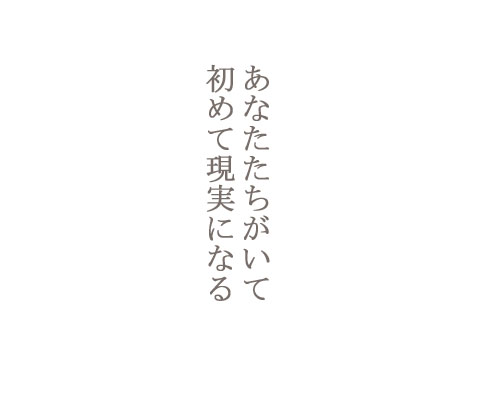 あなたたちがいて
初めて現実になる